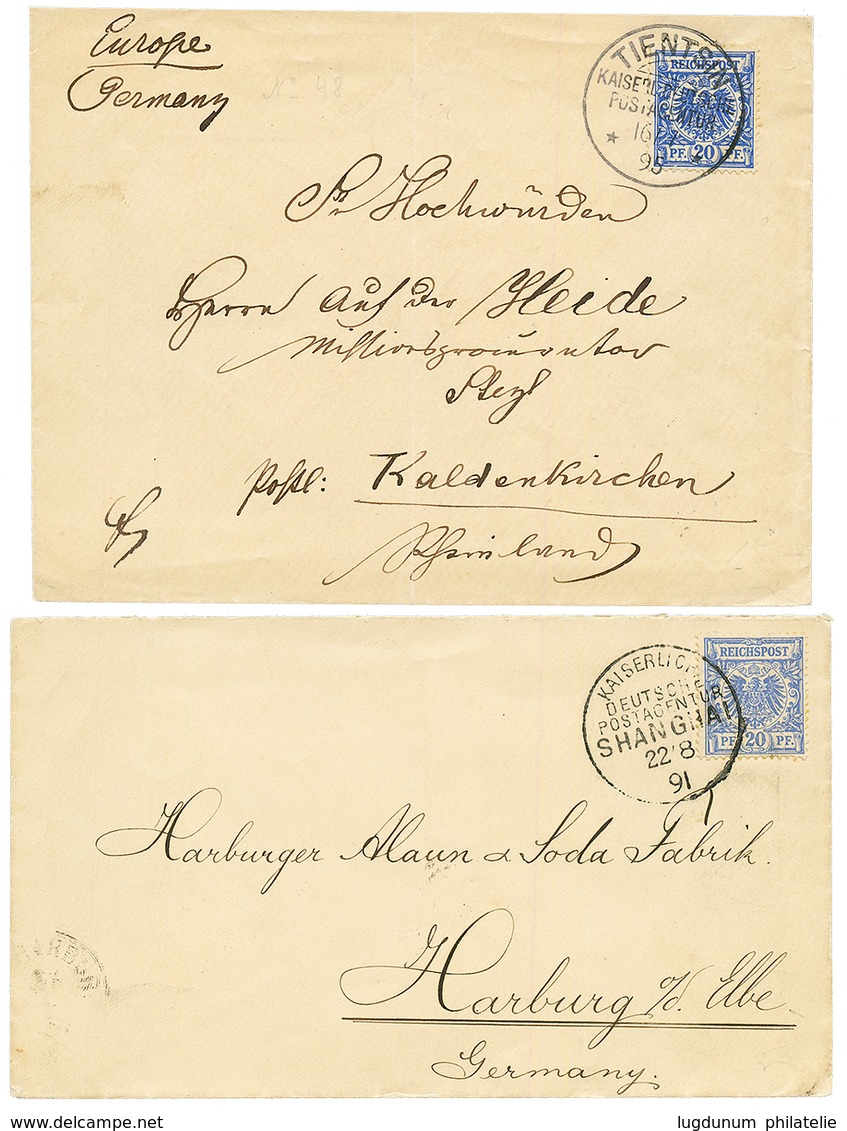 Europe
Germany
No 48
TIENTSIN
KAISERL. DEUTSCHE
POSTAGENTUR
16
95
REICHSPOST
PF. 20 PF.
Sr Hochwürden
Herrn Auf der Heide
Missionsprocurator
Steyl
Postl: Kaldenkirchen
Rheinland
KAISERLICH
DEUTSCHE
POSTAGENTUR
SHANGHAI
22 8
91
REICHSPOST
PF. 20 PF.
Harburger Alaun & Soda Fabrik.
Harburg a/d. Elbe
Germany.
www.delcampe.net
lugdunum philatelie